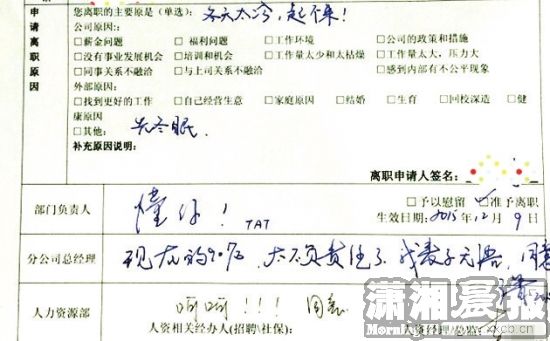 申请离职原因
您离职的主要原是（单选）： 冬天太冷，起不来！
公司原因：
□薪金问题 □福利问题 □工作环境 □公司的政策和措施
□没有事业发展机会 □培训和机会 □工作量太少和太枯燥 □工作量太大，压力大
□同事关系不融洽 □与上司关系不融洽 □感到内部有不公平现象
外部原因：
□找到更好的工作 □自己经营生意 □家庭原因 □结婚 □生育 □回校深造 □健
康原因
□其他： 去冬眠.
补充原因说明：
离职申请人签名：
□予以慰留 准予离职
部门负责人 懂你！ TAT 生效日期：2015年12月9日
分公司总经理 现在的90后，太不负责任了，我表示无语，同意
人力资源部 呵呵！！！ 同意
人资相关经办人(招聘\社保)： 人资经理/总监：
潇湘晨报
www.xxcb.cn